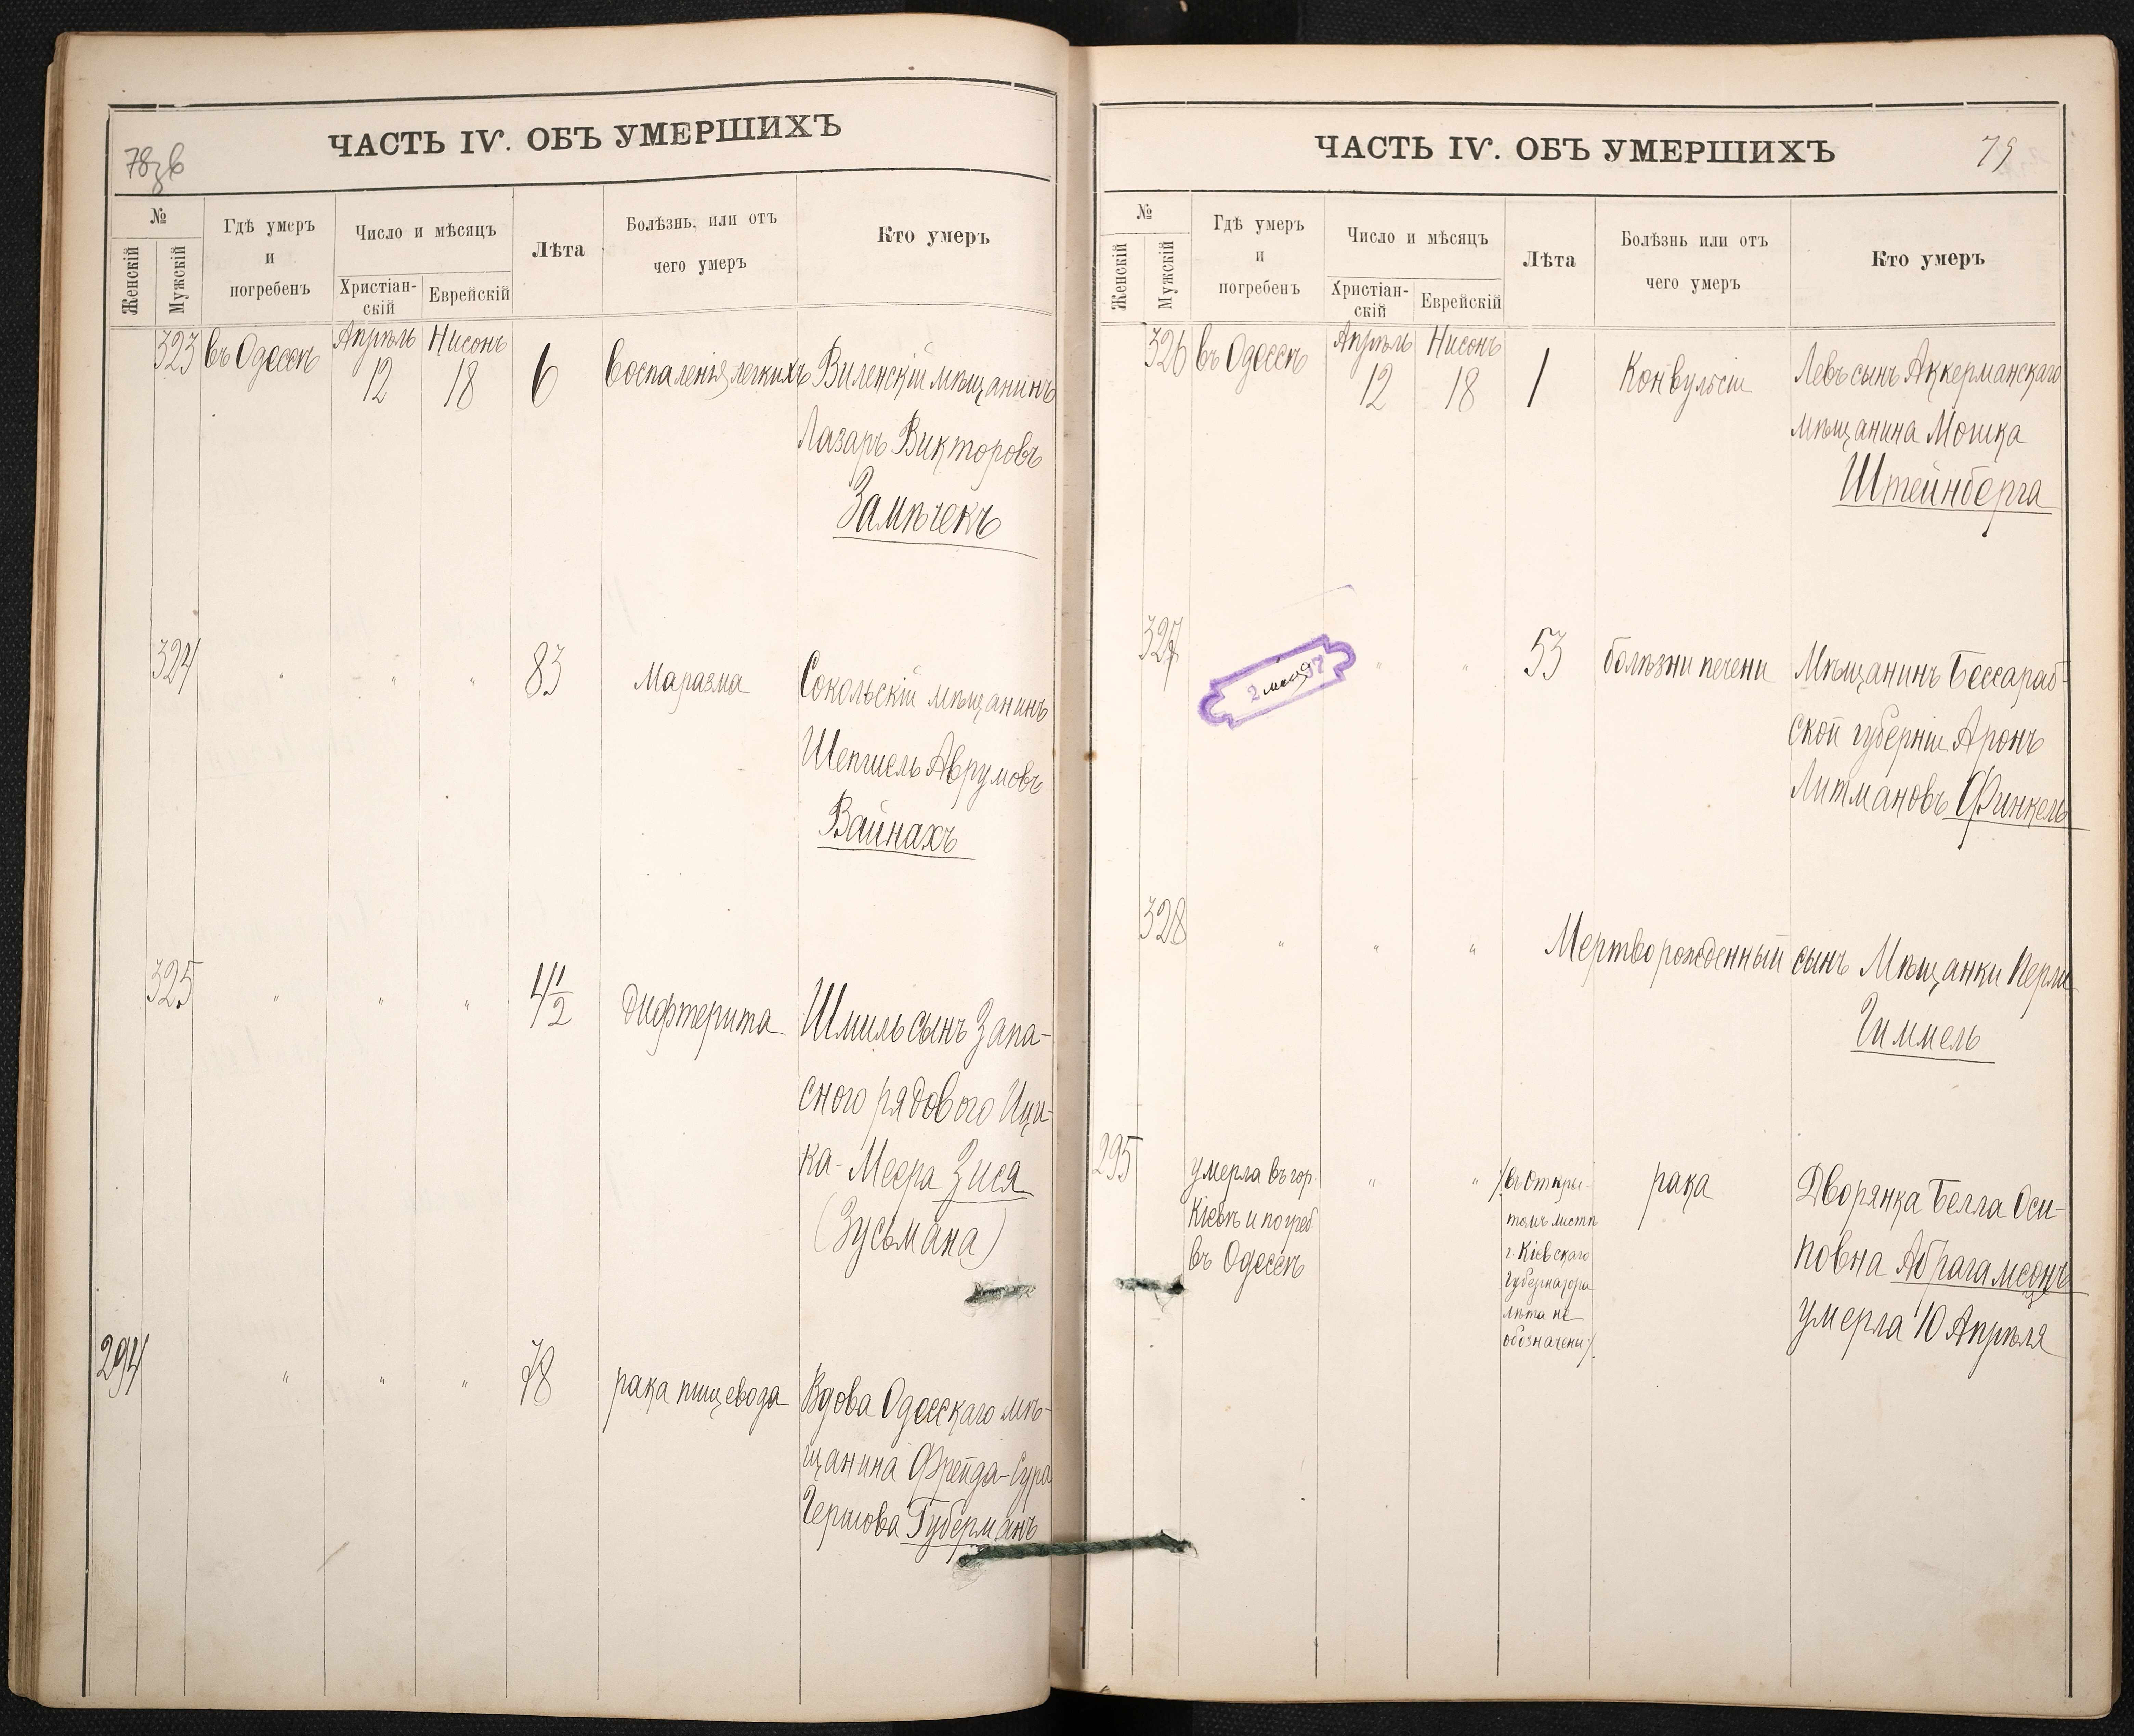 78зв
ЧАСТЬ IV. ОБЪ УМЕРШИХЪ
№
Женскій
Мужскій
Гдѣ умеръ
и
погребенъ
Число и мѣсяцъ
Христіан-
скій
Еврейскій
Лѣта
Болѣзнь, или отъ
чего умеръ
Кто умеръ
323 въ Одессѣ Апрѣль 12 Нисонъ 18 6 Воспаленія легкихъ Виленскій мѣщанинъ
Лазарь Викторовъ
Замѣчекъ
324 " " " 83 Маразма Сокольскій мѣщанинъ
Шепшель Аврумовъ
Вайнахъ
325 " " " 4 1/2 Дифтерита Шмиль сынъ Запа-
сного рядового Ици-
ка-Меера Зися
(Зусьмана)
294 " " " 78 рака пищевода Вдова Одесскаго мѣ-
щанина Фрейда-Сура
Гершова Губерманъ
ЧАСТЬ IV. ОБЪ УМЕРШИХЪ
79
№
Женскій
Мужскій
Гдѣ умеръ
и
погребенъ
Число и мѣсяцъ
Христіан-
скій
Еврейскій
Лѣта
Болѣзнь или отъ
чего умеръ
Кто умеръ
326 въ Одессѣ Апрѣль 12 Нисонъ 18 1 Конвульсіи Левъ сынъ Аккерманскаго
мѣщанина Мошка
Штейнберга
327 " " 53 болѣзни печени Мѣщанинъ Бессараб-
ской губерніи Аронъ
Литмановъ Финкель
328 " " " Мертворожденный сынъ Мѣщанки Перли
Гиммель
295 умерла въ гор.
Кіевѣ и погреб
въ Одессѣ
" "
/въ Откры-
томъ листѣ
г. Кіевскаго
Губернатора
лѣта не
обозначены/.
рака
Дворянка Белла Оси-
повна Абрагамсонъ
умерла 10 Апрѣля